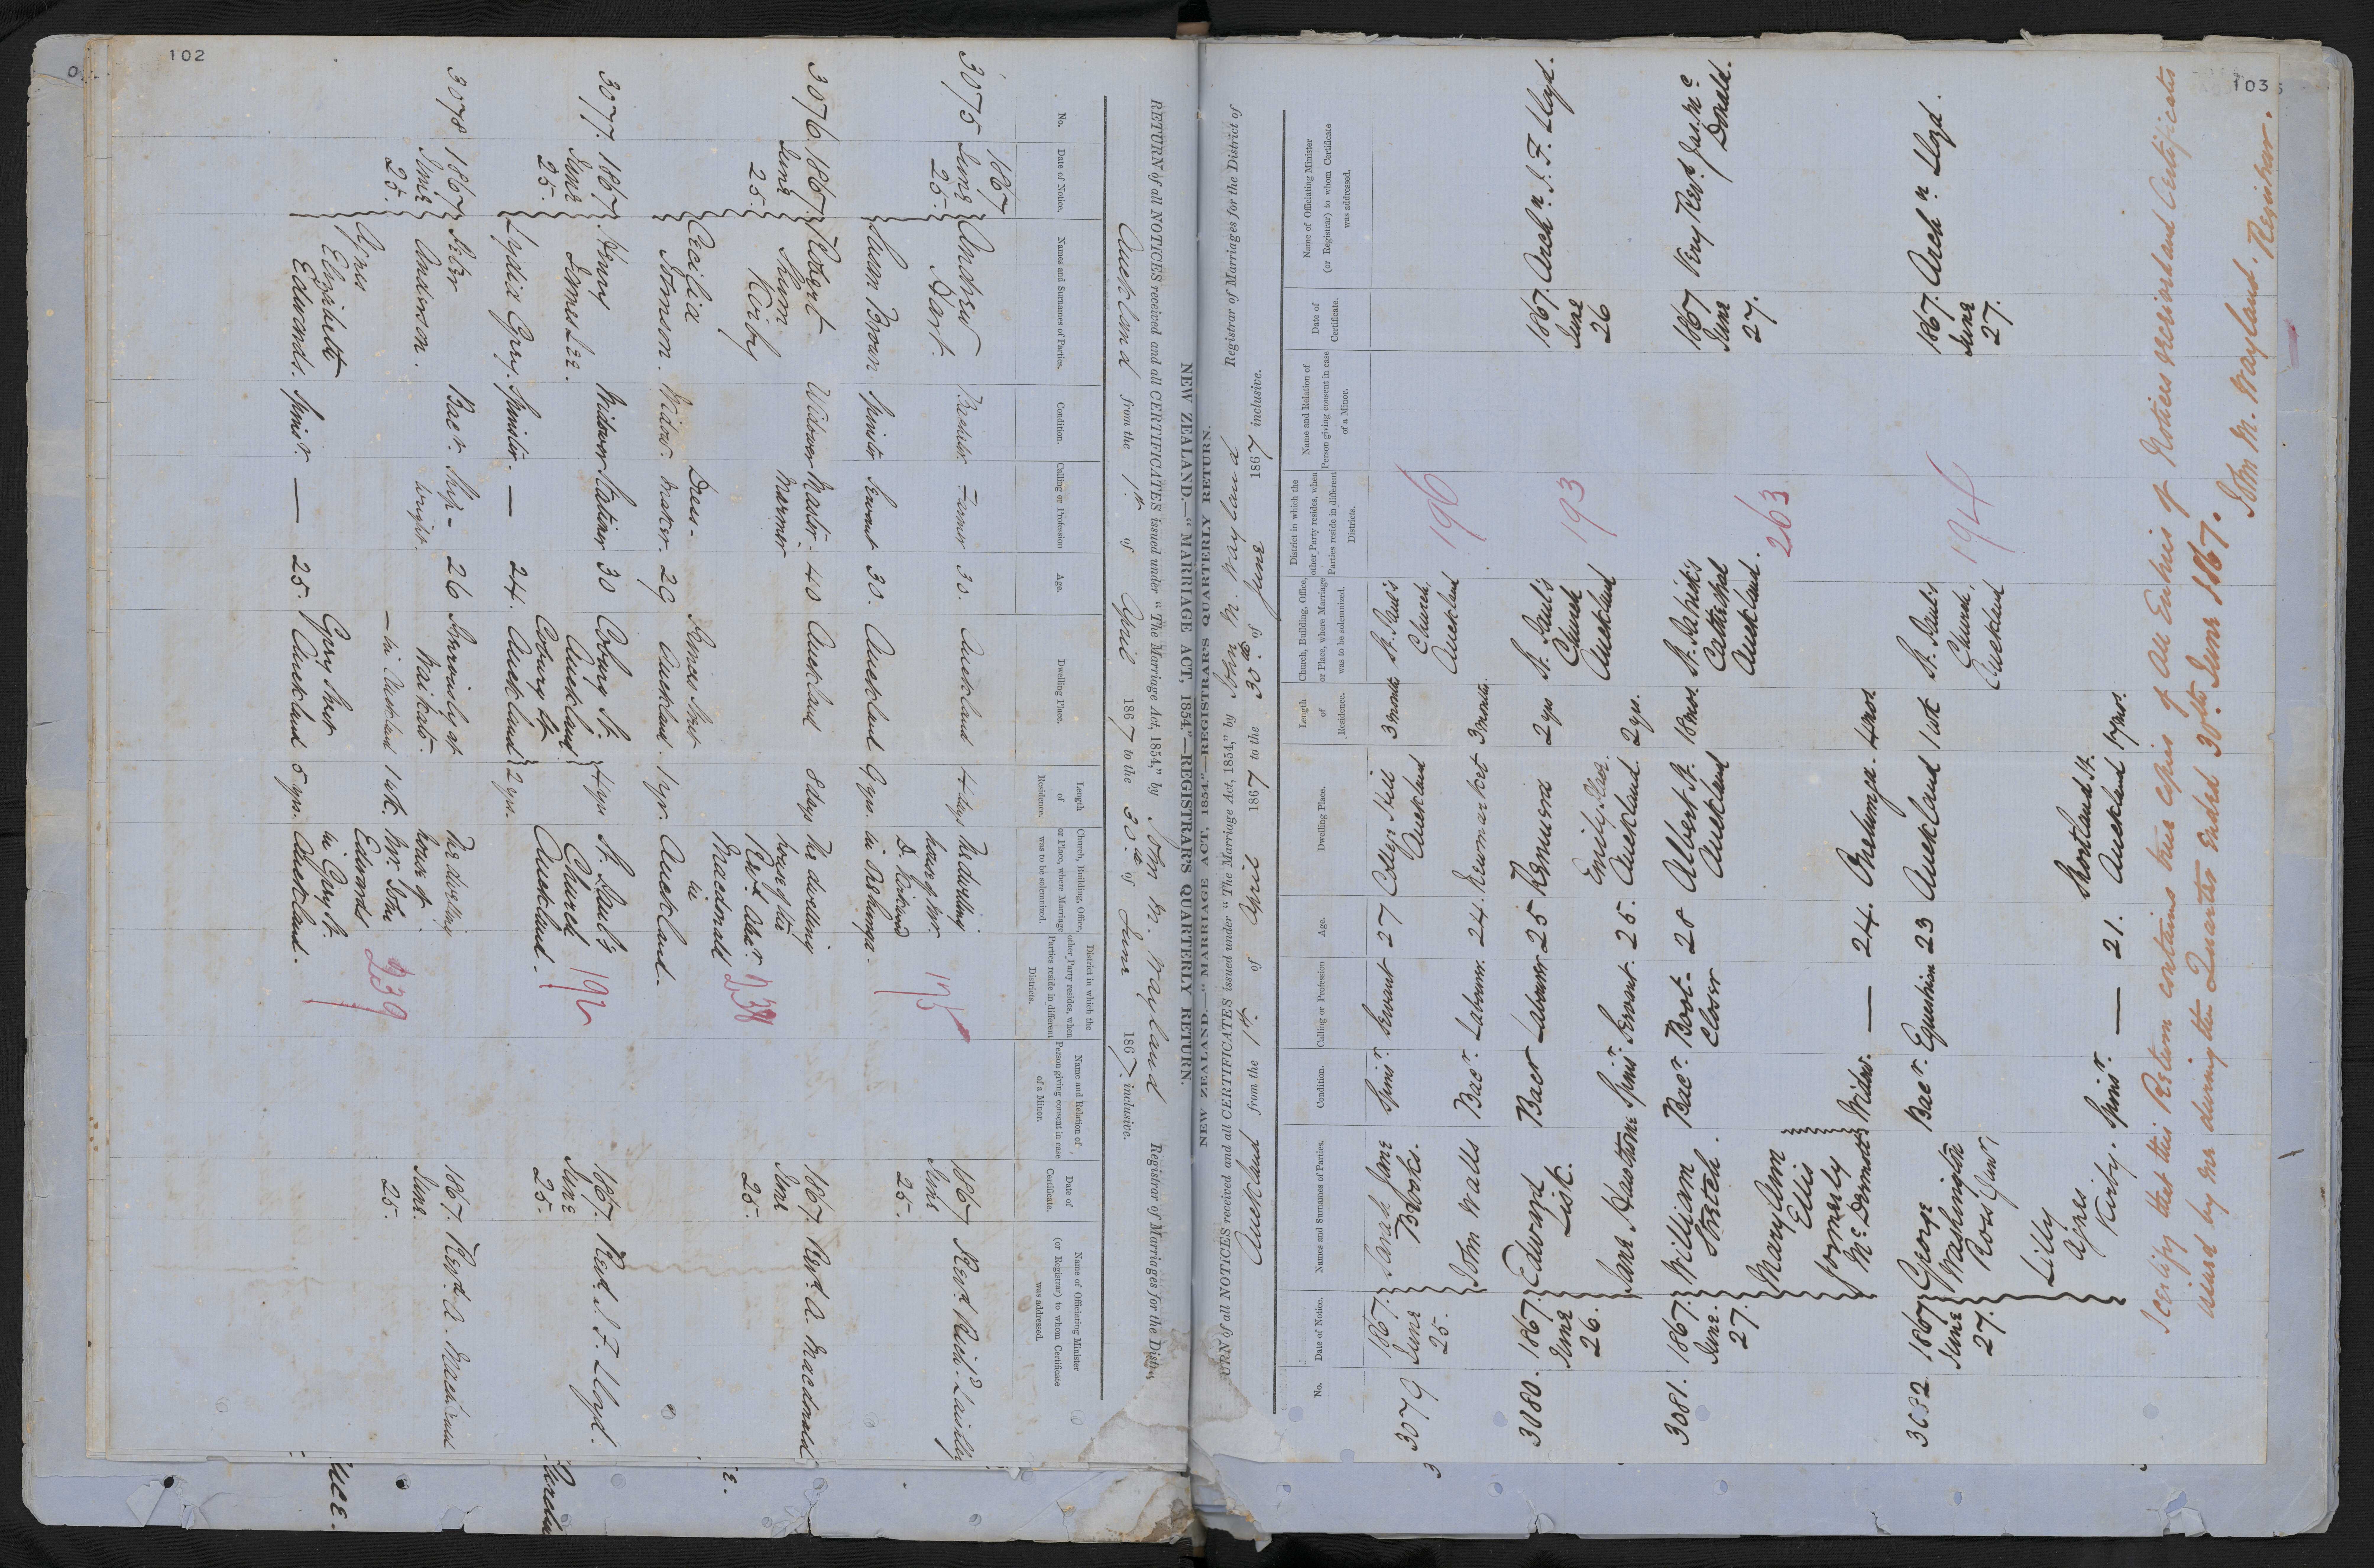 102
NEW ZEALAND.—"MARRIAGE ACT, 1854."—REGISTRAR'S QUARTERLY RETURN.
RETURN of all NOTICES received and all CERTIFICATES issued under "The Marriage Act, 1854," by John M. Wayland Registrar of Marriages for the Distr
Auckland from the 1st of April 1867 to the 30th of June 1867 inclusive.
No.
Date of Notice.
Names and Surnames of Parties.
Condition.
Calling or Profession
Age.
Dwelling Place.
Length of Residence.
Church, Building, Office, or Place, where Marriage was to be solemnized.
District in which the other Party resides, when Parties reside in different Districts.
Name and Relation of Person giving consent in case of a Minor.
Date of Certificate.
Name of Officiating Minister (or Registrar) to whom Certificate was addressed.
3075 1867 June 25. Andrew Dart. Bachelor Farmer 30. Auckland 4 days The dwelling house of Mr. 195 1867 June 25.
Susan Brown Spinster Servant 30. Auckland 9 yrs. in Onehunga.
3076. 1867. June 25. Robert Thom Kirby Widower Master Mariner 40 Auckland 8 days The dwelling house of the Revd. Alexr. Macdonald in Auckland. 238 1867. June 25. Revd. A. Macdonald
Cecilia Stimson. Widow. Dress-maker. 29 Auckland. 1 yr.
3077. 1867. June 25. Henry James Lee. Widower Stationer 30 Coburg St. Auckland 4 yrs St. Paul's Church Auckland. 192 1867. June 25. Revd. J. F. Lloyd.
Lydia Grey. Spinster. — 24. Coburg St Auckland 2 yrs.
3078 1867 June 25. Peter Anderson. Bacr. Ship-wright. 26 Previously at Waikato. — in Auckland 1 wk. The dwelling house of Mr. John Edwards in Grey St. Auckland. 239 1867. June 25. Revd. A. Macdonald
Agnes Elizabeth Edwards. Spinr. — 25. Grey Street Auckland 5 yrs.
103
NEW ZEALAND.—"MARRIAGE ACT, 1854."—REGISTRAR'S QUARTERLY RETURN.
URN of all NOTICES received and all CERTIFICATES issued under "The Marriage Act, 1854," by John M. Wayland Registrar of Marriages for the District of
Auckland from the 1st. of April 1867 to the 30th of June 1867 inclusive.
No.
Date of Notice.
Names and Surnames of Parties.
Condition.
Calling or Profession
Age.
Dwelling Place.
Length of Residence.
Church, Building, Office, or Place, where Marriage was to be solemnized.
District in which the other Party resides, when Parties reside in different Districts.
Name and Relation of Person giving consent in case of a Minor.
Date of Certificate.
Name of Officiating Minister (or Registrar) to whom Certificate was addressed.
3079 1867. June 25. Sarah Jane Brooks. Spinr. Servant 27 Auckland 3 months St. Paul's Church. Auckland 196
John Walls Bacr. Labourer. 24. Newmarket 3 months.
3080. 1867. June 26. Edward Lisk. Bacr Labourer 25 Remuera 2 yrs St. Paul's Church Auckland 193 1867. June 26 Archn. J. F. Lloyd.
Jane Hawthorne Spinr. Servant. 25. Emily Place. Auckland. 2 yrs.
3081. 1867. June. 27. William Stretch. Bacr. Boot-Closer 28 Albert St. Auckland 18 mos. St. Patrick's Cathedral Auckland. 263 1867 June 27. Very Revd. Jas. Mc Donald.
Mary Ann Ellis formerly McDermott Widow. — 24. Onehunga. 4 mos.
3082. 1867 June 27. George Washington Ross Bacr. Equestrian 23 Auckland 1 wk St. Paul's Church. Auckland 194 1867. June 27. Archn. Lloyd.
Lilly Agnes Kirby. Spinr. — 21. Shortland St. Auckland 17 mos.
I certify that this Return contains true copies of all Entries of Notices received and Certificates
issued by me during the Quarter ended 30th. June 1867.
John M. Wayland. Registrar.